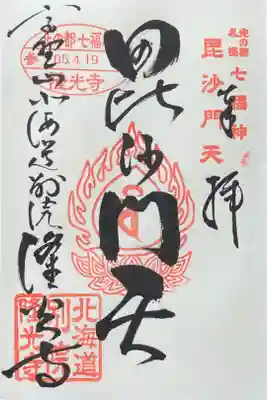 北の都
札幌 七福神
毘沙門天
奉拝
毘沙門天
北の都七福
05.4.19
隆光寺
高野山北海道別院隆光寺
北海道
別院
隆光寺